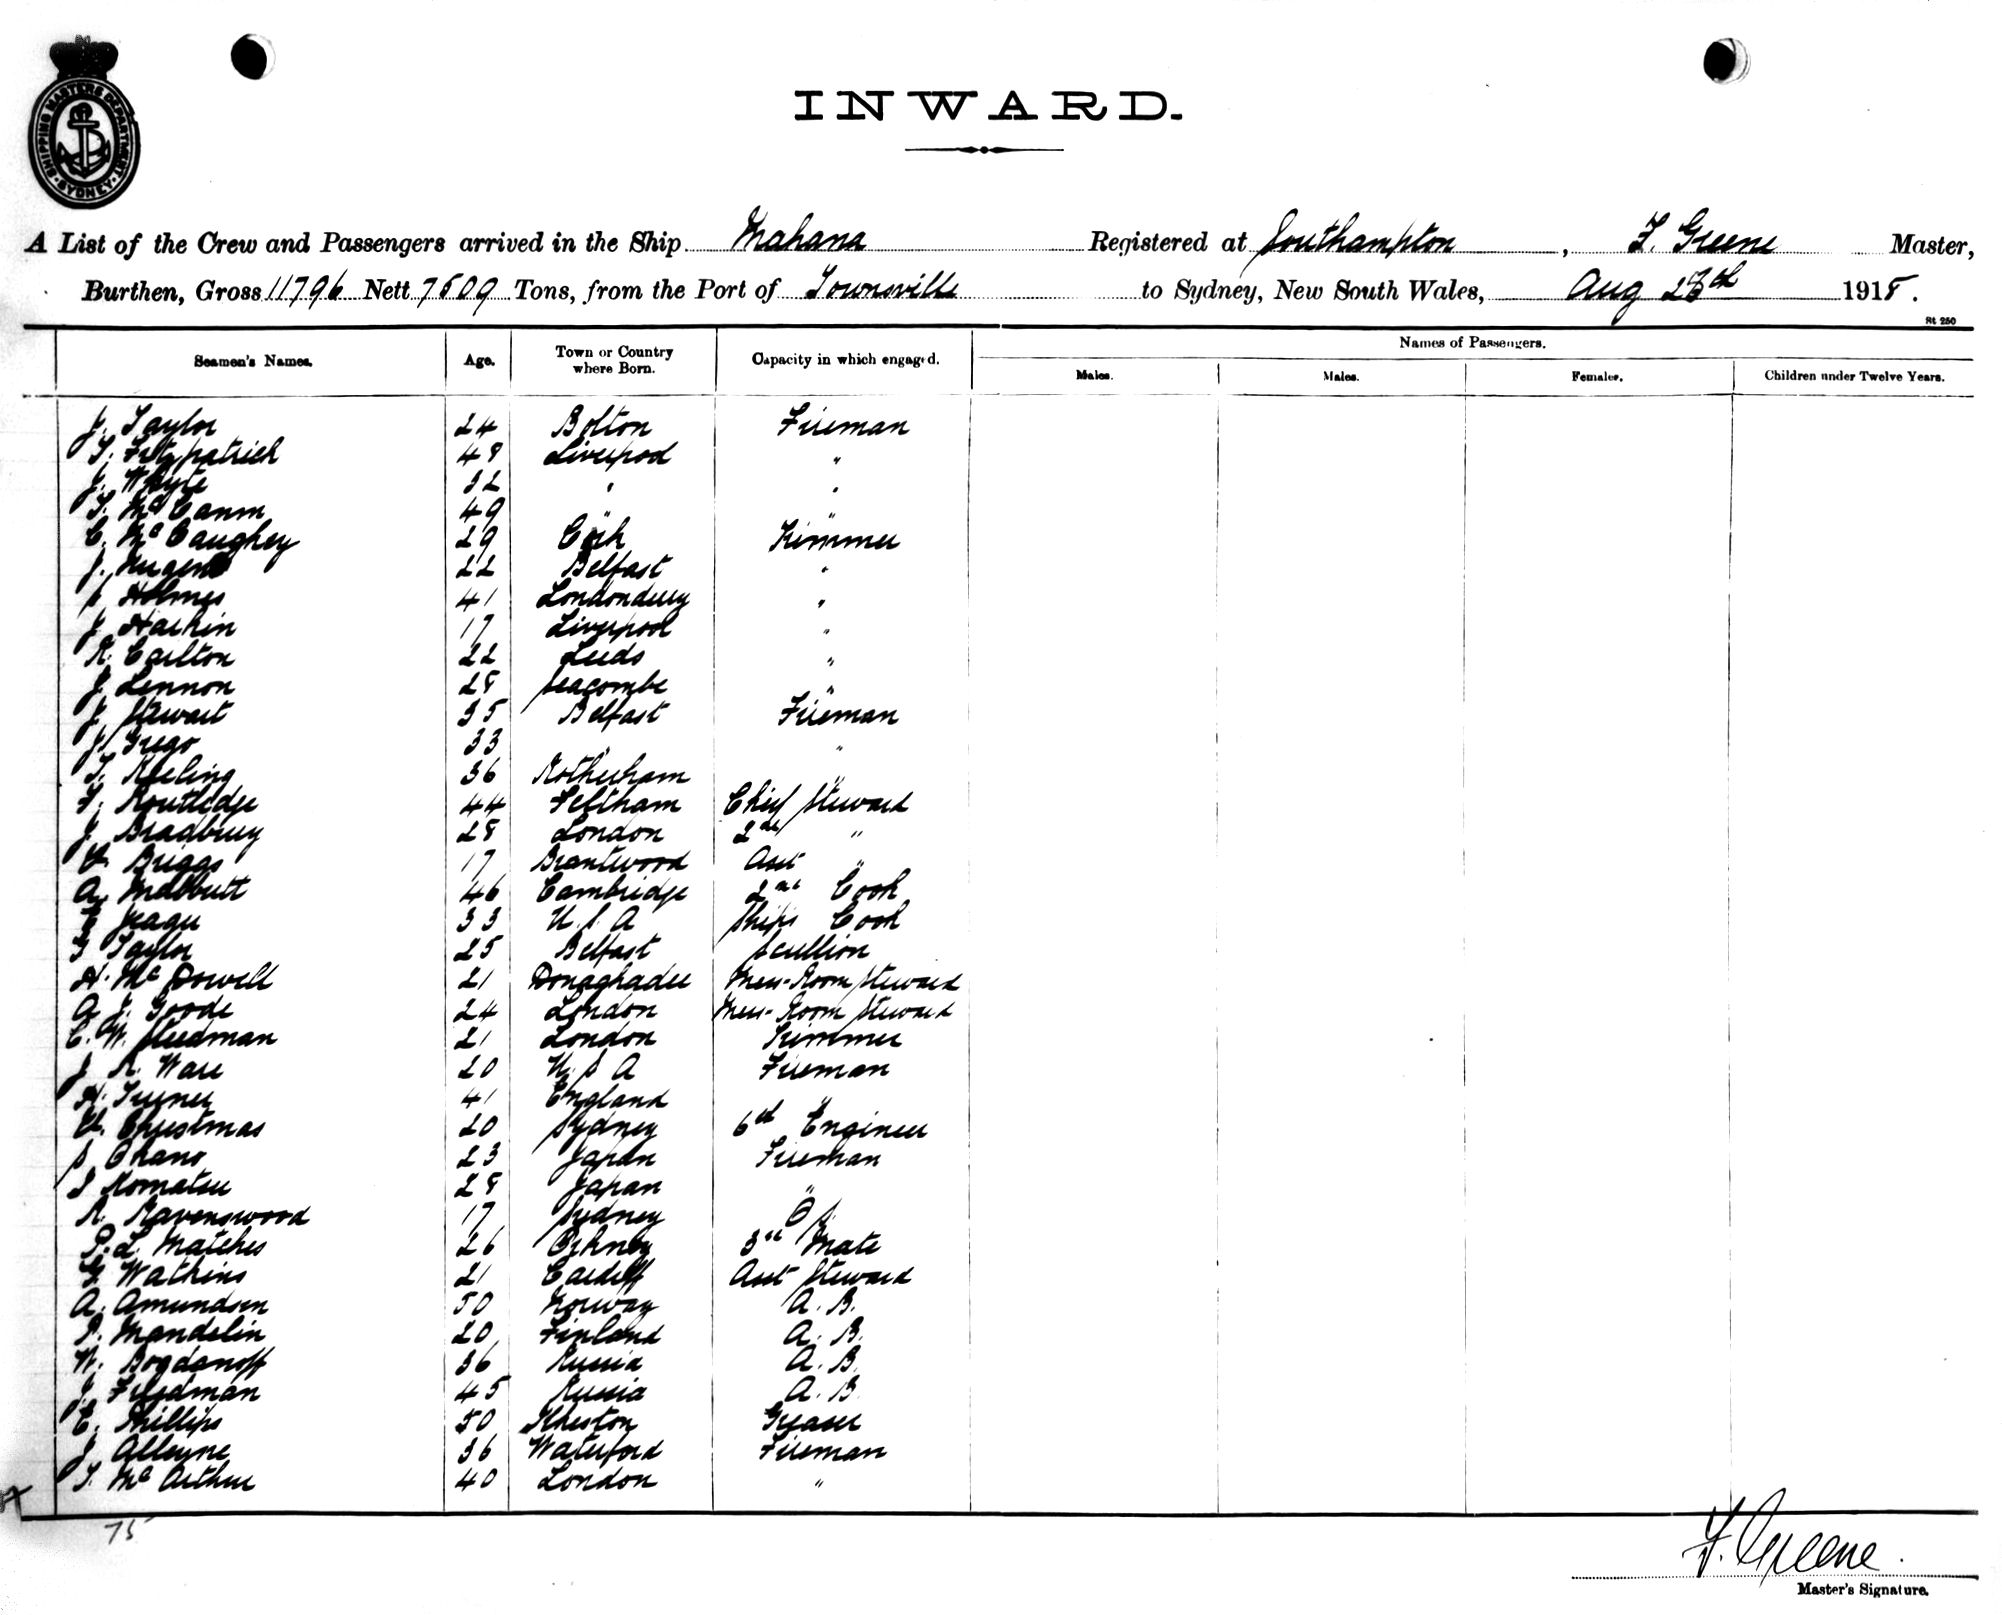 SHIPPING MASTERS DEPARTMENT SYDNEY
INWARD.
A List of the Crew and Passengers arrived in the Ship Mahana Registered at Southampton, F. Greene Master,
Burthen, Gross 11796 Nett 7609 Tons, from the Port of Townsville to Sydney, New South Wales, Aug 28th 1918.
St 250
Seamen's Names. Age. Town or Country where Born. Capacity in which engaged. Names of Passengers.
Males. Males. Females. Children under Twelve Years.
J. Taylor 24 Bolton Fireman
T. Fitzpatrick 48 Liverpool "
J. Whyte 32 " "
T. McCann 49 " "
C. McCaughey 29 Cork Trimmer
J. Nugent 22 Belfast "
J. Holmes 41 Londonderry "
J. Harkin 17 Liverpool "
R. Carlton 22 Leeds "
J. Lennon 28 Seacombe "
J. Stewart 35 Belfast Fireman
J. Grego 33 " "
T. Keeling 36 Rotherham "
F. Routledge 44 Feltham Chief Steward
J. Bradbury 28 London 2nd "
V. Briggs 17 Brantwood Asst "
A. Mabbutt 46 Cambridge 2nd Cook
33 U.S.A Ships Cook
G Taylor 25 Belfast Scullion
H. McDowell 21 Donaghadee Mess-Room Steward
A. J. Goode 24 London Mess-Room Steward
C. W. Steedman 21 London Trimmer
J R. Ware 20 U.S.A Fireman
H. Turner 41 England "
V. Christmas 20 Sydney 6th Engineer
S Okano 23 Japan Fireman
Komatsu 28 Japan "
R. Ravenswood 17 Sydney O.S.
P. L. Matches 26 Orkney 3rd Mate
G. Watkins 21 Cardiff Asst Steward
A. Amundsen 50 Norway A. B.
P. Mandelin 20 Finland A. B.
W. Bogdanoff 36 Russia A. B.
J. Friedman 45 Russia A. B.
C. Phillips 50 Greaser
J. Alleyne 36 Waterford Fireman
T. McArthur 40 London "
75
F. Greene.
Master's Signature.